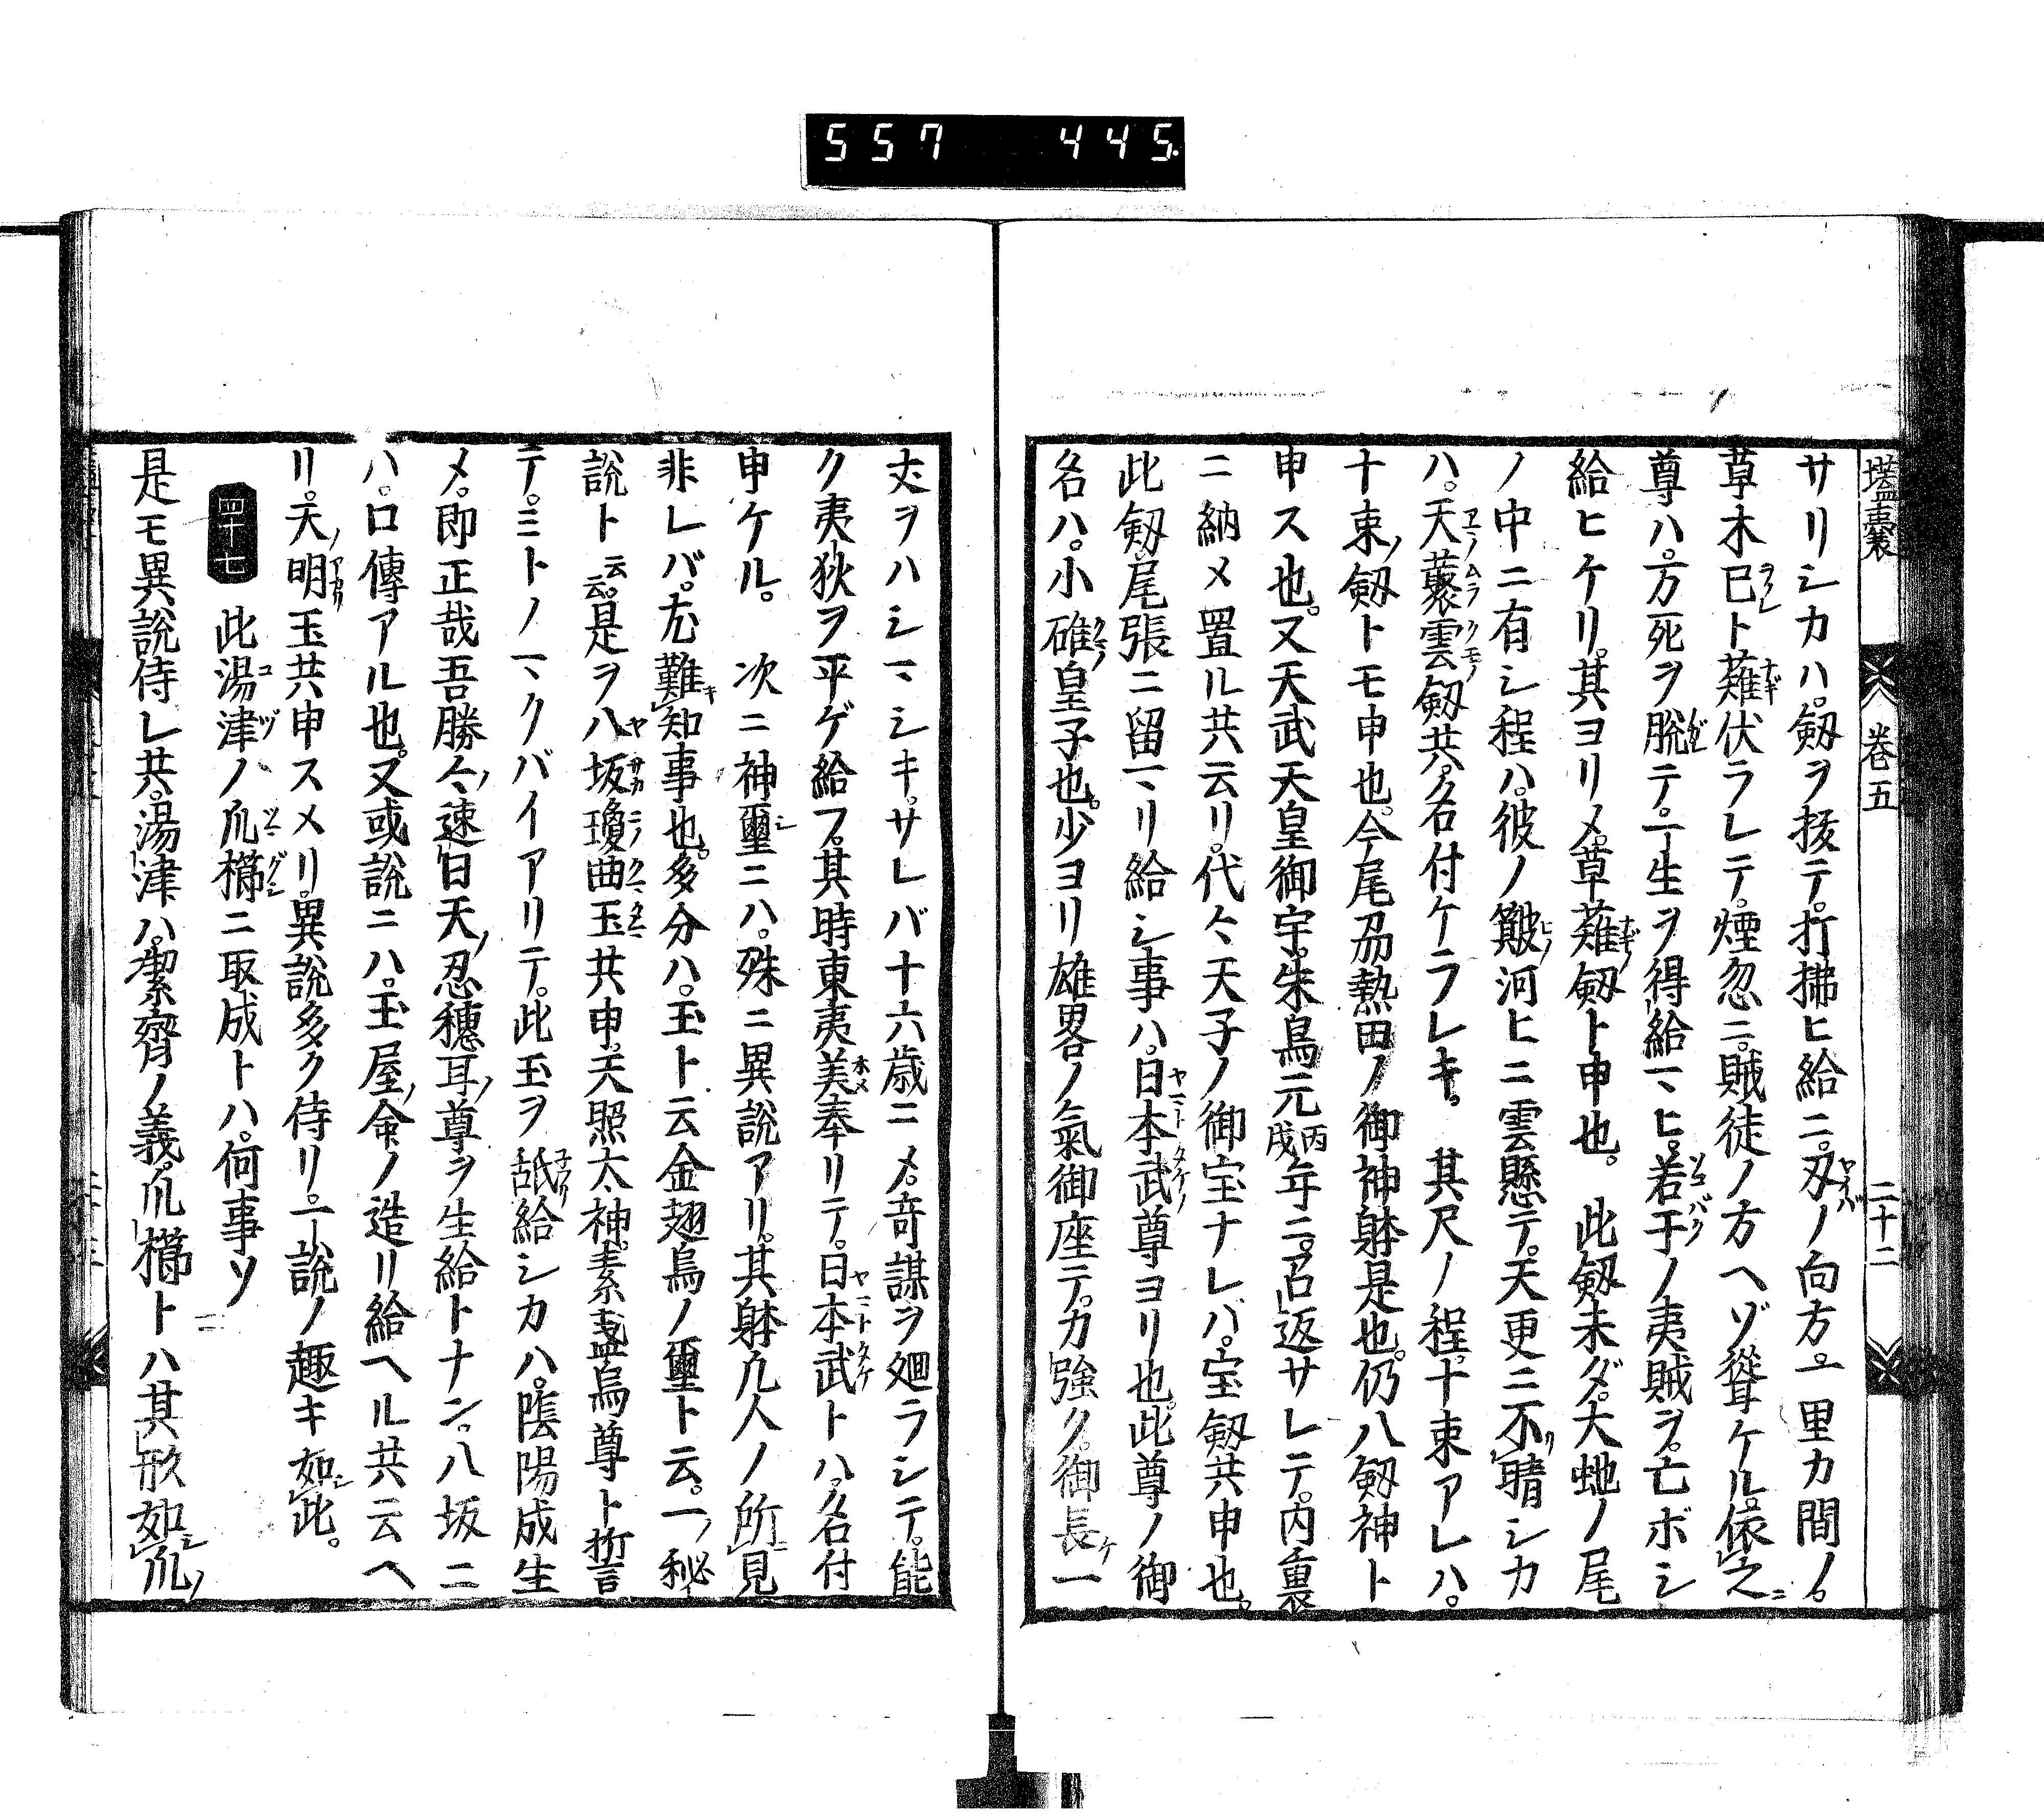 557 445.
壒囊 巻五 二十二
サリシカハ。剱ヲ抜テ。打拂ヒ給ニ。刄ノ向方。一里カ間ノ。
草木已ト薙伏ラレテ。煙忽ニ。賊徒ノ方ヘゾ聳ケル。依之
尊ハ。万死ヲ脱テ。一生ヲ得給マヒ。若干ノ夷賊ヲ。亡ボシ
給ヒケリ。其ヨリメ。草薙剱ト申也。此剱未ダ。大虵ノ尾
ノ中ニ有シ程ハ。彼ノ簸河ヒニ雲懸テ。天更ニ不晴シカ
ハ。天藂雲剱共。名付ケラレキ。其尺ノ程。十束アレハ。
十束ノ剱トモ申也。今尾刕熱田ノ御神躰是也。仍八剱神ト
申ス也。又天武天皇御宇。朱鳥元丙戌年ニ。召返サレテ。内裏
ニ納メ置ル共云リ。代々天子ノ御宝ナレバ。宝剱共申也。
此剱。尾張ニ留マリ給シ事ハ。日本武尊ヨリ也。此尊ノ御
名ハ。小碓皇子也。少ヨリ雄畧ノ氣御座テ。力強ク。御長一
丈ヲハシマシキ。サレバ十六歳ニメ。竒謀ヲ廻ラシテ。能
ク夷狄ヲ平ゲ給フ。其時東夷美奉リテ。日本武トハ。名付
申ケル。次ニ神璽ニハ。殊ニ異說アリ。其躰凡人ノ所見
非レバ。尤難知事也。多分ハ。玉ト云金翅鳥ノ璽ト云。一ノ秘
說ト云云。是ヲ八坂瓊曲玉共申。天照太神。素盞烏尊ト誓
テ。ミトノマクバイアリテ。此玉ヲ舐給シカハ。陰陽成生
メ。即正哉吾勝々速日天忍穗耳尊ヲ生給トナン。八坂ニ
ハ。口傳アル也。又或說ニハ。玉屋命ノ造リ給ヘル共云ヘ
リ。天明玉共申スメリ。異說多ク侍リ。一說ノ趣キ如此。
四十七 此湯津ノ爪櫛ニ取成トハ。何事ソ
是モ異說侍レ共。湯津ハ。潔齊ノ義。爪櫛トハ其形如爪